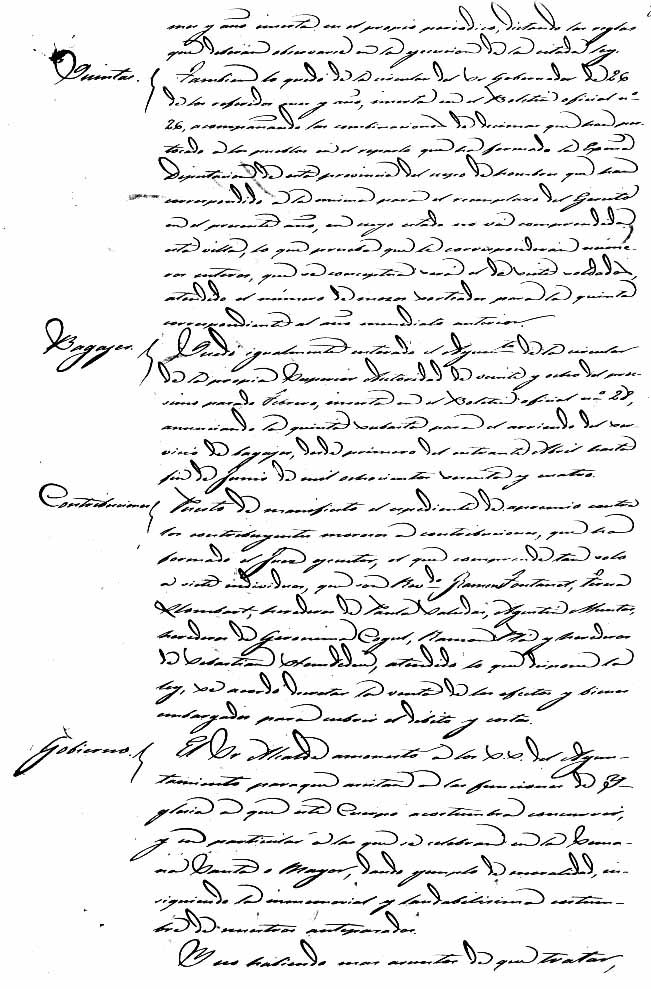 mes y año inserta en el propio periodico, dictando las reglas
que deberan observarse en la ejecucion de la citada ley.
Quintas. Tambien lo quedó de la circular del Sr Gobernador de 26
de los espresados mes y año, inserta en el Boletin oficial nº
26, acompañando las combinaciones de decimas que han
tocado a los pueblos en el reparto que ha formado la Exma
Diputacion de esta provincia del cupo de hombres que han
correspondido a la misma para el reemplazo del Ejercito
en el presente año, en cuyo estado no va comprendida
esta villa, lo que prueba que le corresponderan núme-
ros enteros, que se conceptua será el de veinte soldados,
atendido el número de mozos sorteados para la quinta
correspondiente al año inmediato anterior.
Bagajes. Quedó igualmente enterado el Ayuntto de la circular
de la propia Superior Autoridad de veinte y ocho del pró-
simo pasado Febrero, inserta en el Boletin oficial nº 28,
anunciando la quinta subasta para el arriendo del ser-
vicio de bagajes, desde primero del entrante Abril hasta
fin de Junio de mil ochocientos sesenta y cuatro.
Contribuciones Puesto de manifiesto el espediente de apremio contra
los contribuyentes morosos a contribuciones, que ha
formado el Juez ejecutor, el que comprende tan solo
a siete individuos, que son Ramon Fontanet, Teresa
Llombart, herederos de Paula Saludas, Agustin Muntes,
herederos de Geronima Coqul, Ramon y herederos
de Sebastian, atendido lo que dispone la
ley, se acordó decretar la venta de los efectos y bienes
embargados para cubrir el débito y costas.
Gobierno. El Sr Alcalde amonestó a los SS. del Ayun-
tamiento para que asistan a las funciones de Ygª
glesia a que este Cuerpo acostumbra concurrir,
y en particular a las que se celebran en la Sema-
na Santa o Mayor, dando ejemplo de moralidad, in-
siguiendo la inmemorial y laudabilisima costum-
bre de nuestros antepasados.
Y no habiendo mas asuntos de que tratar,